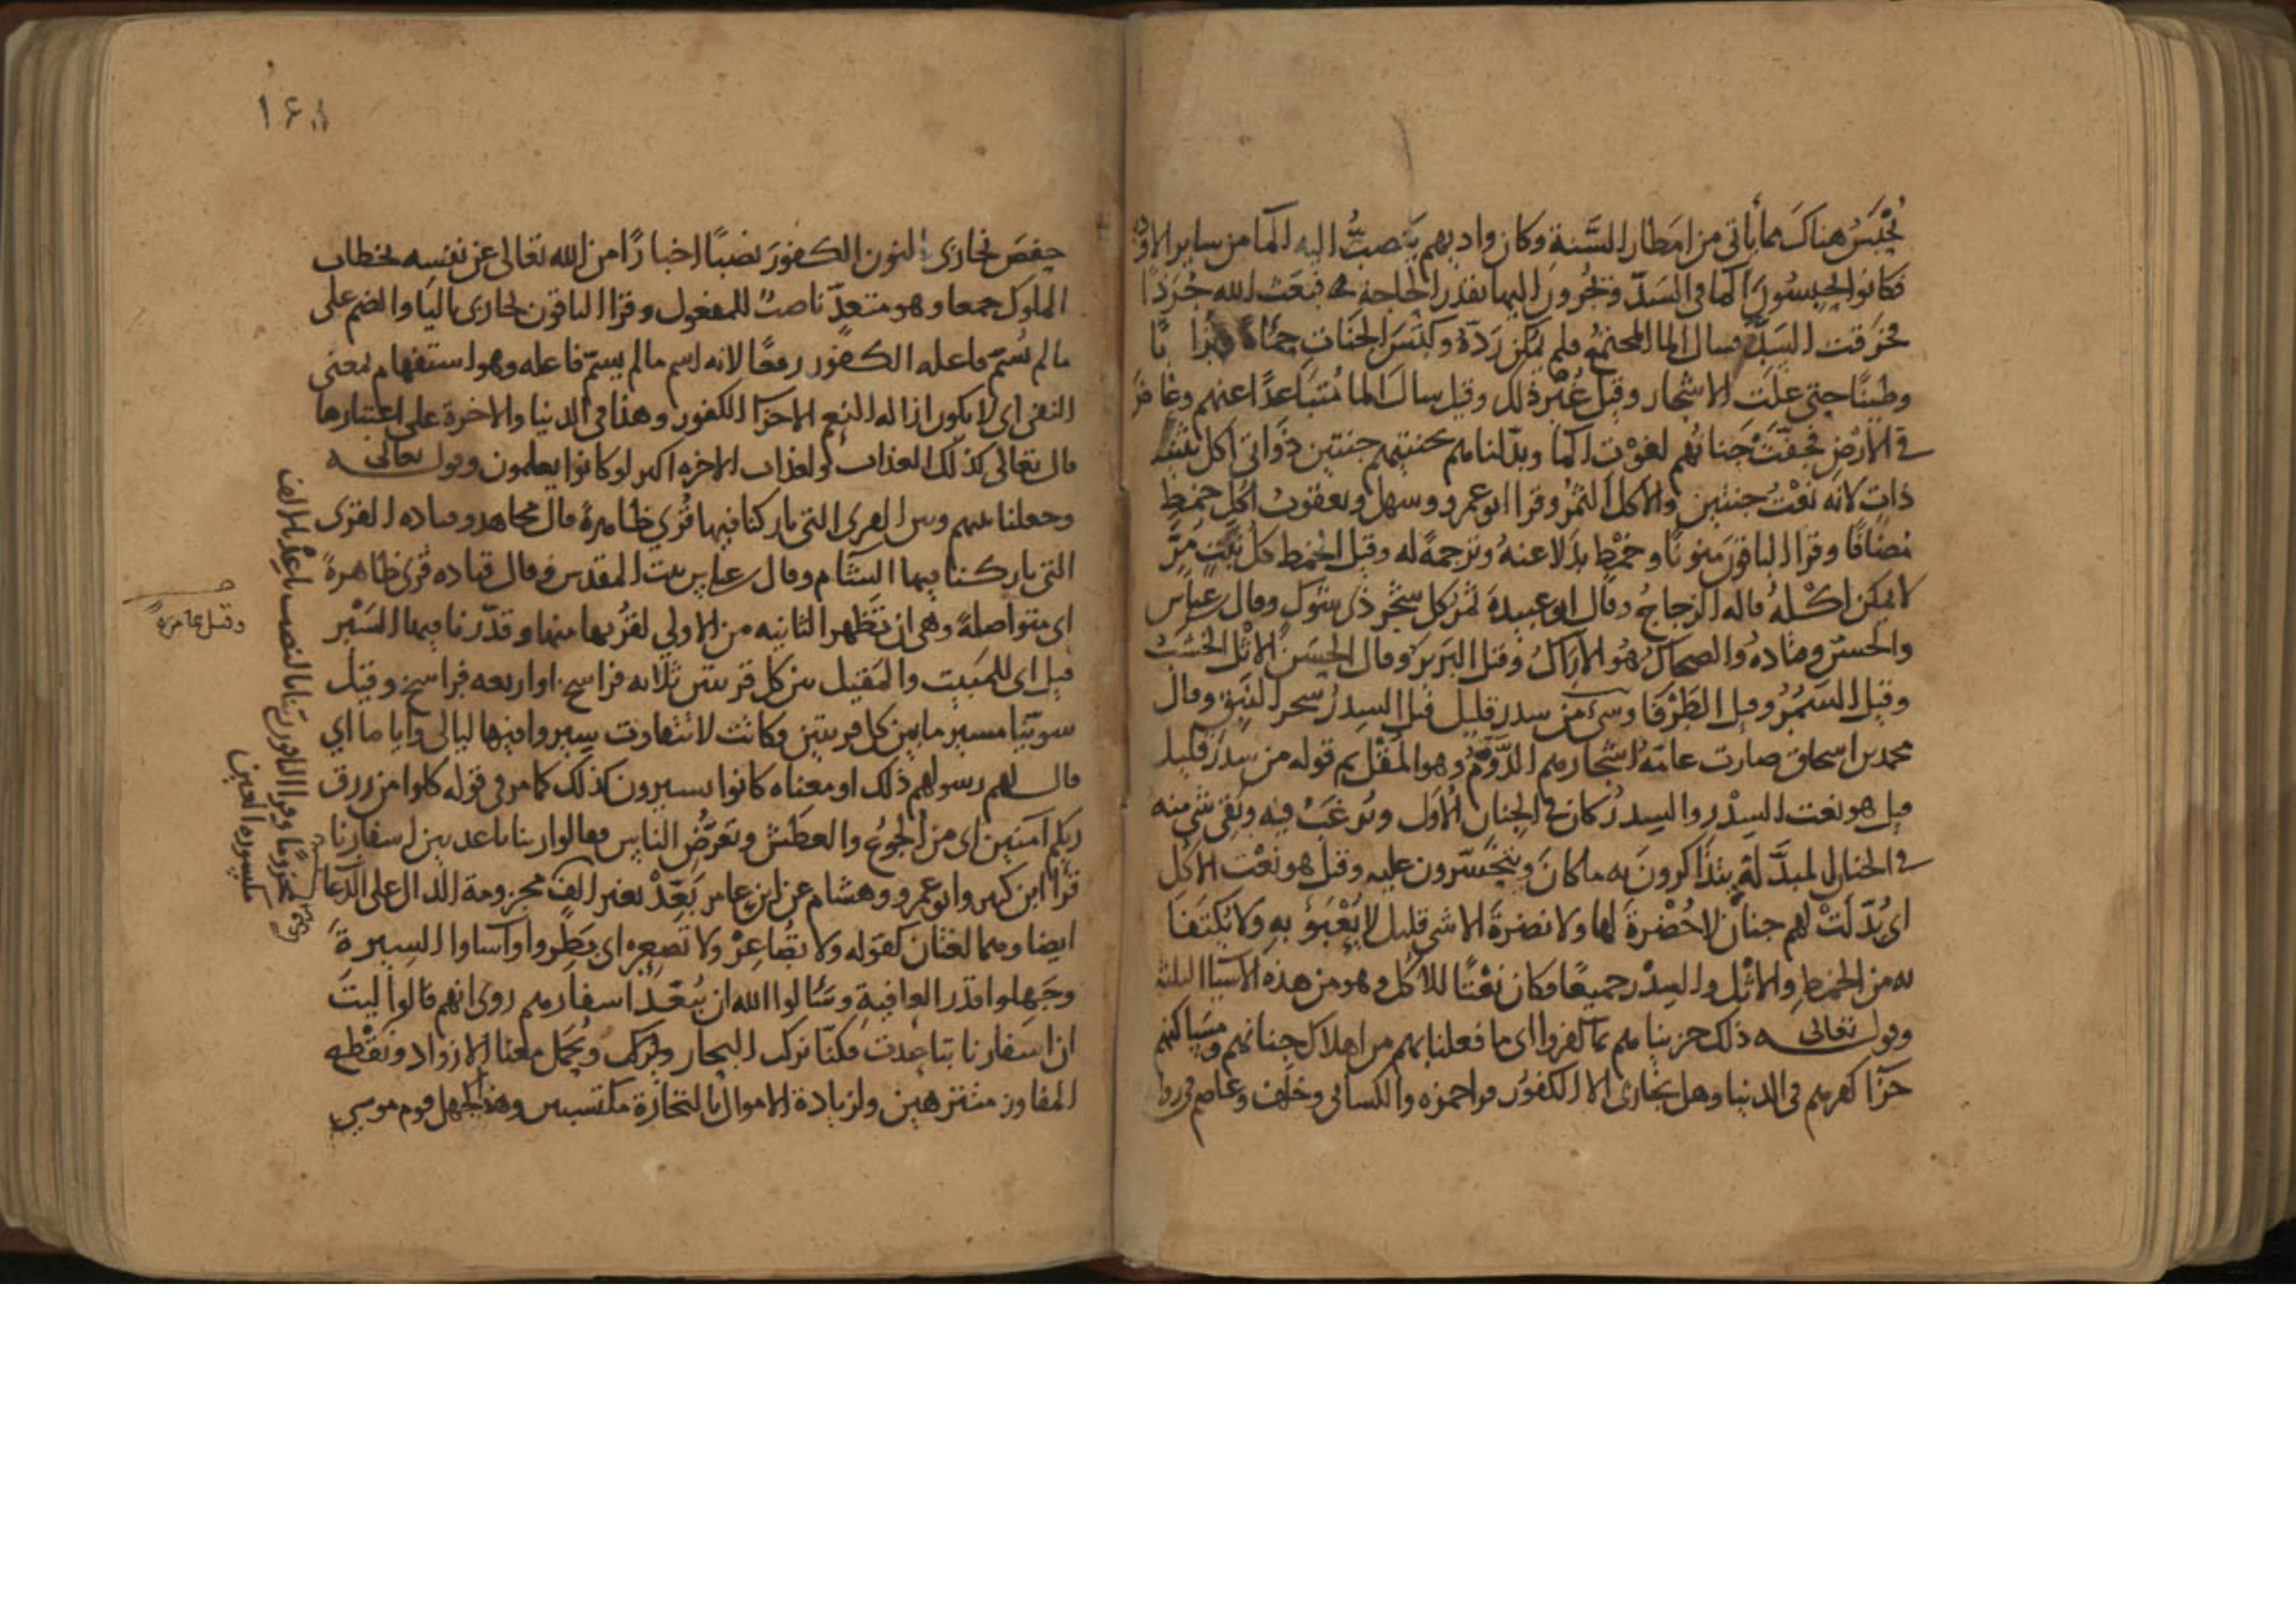 يُحْبَسُ هناكَ ما يأتى من امطار السَّنة وكان واديهم يَنصبُّ اليه الما من ساير الاودية
فكانوا يحبسُون الما فى السَّدّ ويخرجون اليها بقدر الحاجة فبَعَث الله جُرَذًا
فخرقت السَّدّ فسال الما المجتمع فلم يمكن رَدّهُ وكبَسَ الجنات
وطينًا حتى علَت الاشجار وقيل غير ذلك وقيل سال الما مُتبَاعدًا عنهم وغاض
فى الارضِ فجفّتْ جَناتهُم لفوْت الما وبدّلناهم بجنتيهم جنتين ذَوَاتى اكل تثنية
ذات لانه نعْتُ جنتين والاكل الثمرُ وقرا ابو عمرو وسهل ويعقوب اكلِ خمطٍ
مضافًا وقرا الباقون منونًا وخمْطٍ بدَلا عنهُ وترجمةً له وقيل الخمط كل نَبْتٍ مَرّ
لا يمكن اكْلهُ قاله الزجاج وقال ابو عبيدة ثمر كل شجر ذى شوك وقال ابن عباس
والحسن وقتاده والضحاك هُو الاراكُ وقيل البَريرُ وقال الحسَن الاثْل الخشَبُ
وقيل السَمُرُ وقيل الطَرْفَا وشىء من سدر قليل قيل السِدرُ شجر النَبق وقال
محمد بن اسحاق صارت عامّة اشجارهم الدَّوْمُ وهو المُقْل ثم قوله من سِدر قليل
قيل هو نعت السِدْر والسِدرُ كان فى الجنان الاوَل ويُرغَبُ فيه وبقى شى منه
فى الجنان المبدَّلة يتذاكرونَ به ما كانَ ويتحَسّرون عليه وقيل هو نعْت الاكل
اى بُدّلَتْ لهم جنانٌ لا خُضْرةَ لها ولا نضرَةَ الا شى قليل لا يُعْبَؤُ بهِ ولا يكتَفَا
به من الخمطِ والاثْلِ والسِدْر جميعًا فكان نعْتًا للاكل وهو من هذه الاشيا الثلثة
وقوله تعالى ذلك جزيناهم بما كفروا اى ما فعلنا بهم من اهلاك جنانهم ومساكنهم
جزآ كفرهم فى الدنيا وهل يجازى الا الكفور قرا حمزه والكسائى وخلف وعاصم فى رواية
١٤٨
حفص نجازى بالنون الكفورَ نصْبًا اخبارًا من الله تعالى عن نفسِه بخطاب
الملوك جمعا وهو متعدّ ناصبٌ للمفعول وقرا الباقون يجازى باليا والضم على
ما لم يُسَمّ فاعله الكفور رفعًا لانه اسم ما لم يسمّ فاعله وهو استفهام بمعنى
النفى اى لا يكون ازالة النعم الا جزآ الكفور وهذا فى الدنيا والاخرة على اعتبارها
قال تعالى كذلك العذاب ولعذاب الاخره اكبر لو كانوا يعلمون وقوله تعالى
وجعلنا بينهم وبين القرى التى باركنا فيها قُرًى ظاهرةً قال مجاهد وقتاده القرى
التى باركنا فيها الشام وقال ابن عباس بيت المقدس وقال قتاده قرى ظاهرةً
اى متواصلةً وهى ان تَظهر الثانيه من الاولى لقُربها منها وقدّرنا فيها السَيْر
قيل اى للمَبيتِ والمَقيل بين كل قريتين ثلاثه فراسخ او اربعه فراسخ وقيل
سوّينا مسير ما بين كل قريتين وكانت لا تتفاوت سيروا فيها ليالى وايا ما اى
قال لهم رسولهم ذلك او معناه كانوا يسيرون كذلك كما مر فى قوله كلوا من رزق
ربكم آمنين اى من الجوع والعطش وتعرّضُ الناس فقالوا ربنا باعد بين اسفارنا
قرا ابن كثير وابو عمرو وهشام عن ابن عامر بَعِّدْ بغير الف مجزومة الدال على الدعا
ايضا وهما لغتان كقوله ولا تُصَاعِرْ ولا تصَعِر اى بَطِروا واساوا السيرةَ
وجَهلوا قدر العافيةِ وسَئالوا الله ان يُبَعّد اسفارهم روى انهم قالوا ليتَ
ان اسفارنا تباعدت فكنّا نركب البحار ونحمل معنا الازواد ونقْطع
المفاوز متنزهين ولزيادة الاموال بالتجارة مكتسبين وهذا كجهل قوم موسى
وقيل عامرةً
وقرا الباقون ربنا بالنصب باعِدْ بالالف
مكسورة العين